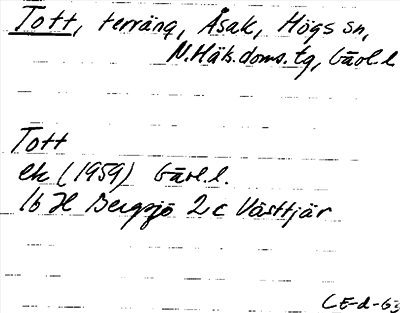 Tott, terräng, Åsak, Högs sn,
N. Häls. doms. tg, Gävl. l
Tott
ek (1959) Gävl. l.
16 H Bergsjö 2 c Västtjär
CE-d-63